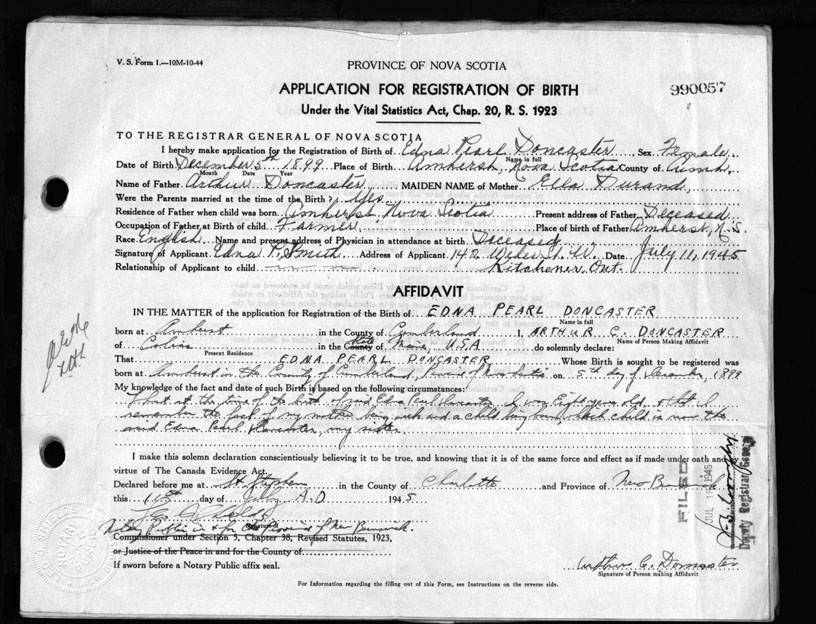 V. S. Form 1.—10M-10-44
PROVINCE OF NOVA SCOTIA
APPLICATION FOR REGISTRATION OF BIRTH
990057
Under the Vital Statistics Act, Chap. 20, R. S. 1923
TO THE REGISTRAR GENERAL OF NOVA SCOTIA
I hereby make application for the Registration of Birth of Edna Pearl Doncaster Sex Female
Name in full
Date of Birth December 5th 1899 Place of Birth Amherst, Nova Scotia County of Cumb.
Month Date Year
Name of Father Arthur Doncaster MAIDEN NAME of Mother Ella Durand
Were the Parents married at the time of the Birth? Yes
Residence of Father when child was born Amherst, Nova Scotia Present address of Father Deceased
Occupation of Father at Birth of child Farmer Place of birth of Father Amherst, N.S.
Race English Name and present address of Physician in attendance at birth Deceased
Signature of Applicant Edna P. Smith Address of Applicant 142 Weber St. W. Date July 11, 1945
Relationship of Applicant to child Kitchener, Ont.
AFFIDAVIT
IN THE MATTER of the application for Registration of the Birth of EDNA PEARL DONCASTER
Name in full
born at Amherst in the County of Cumberland I, ARTHUR C. DONCASTER
Name of Person Making Affidavit
of in the County State of Maine, USA do solemnly declare:
Present Residence
That EDNA PEARL DONCASTER Whose Birth is sought to be registered was
born at Amherst in the County of Cumberland, Province of Nova Scotia on 5th day of December, 1899
My knowledge of the fact and date of such Birth is based on the following circumstances:
That at the time of the birth of said Edna Pearl Doncaster I was Eight years old & that I
remember the fact of my mother being sick and a child being born, which child is now the
said Edna Pearl Doncaster, my sister
I make this solemn declaration conscientiously believing it to be true, and knowing that it is of the same force and effect as if made under oath and by
virtue of The Canada Evidence Act.
Declared before me at St. Stephen in the County of Charlotte and Province of New Brunswick
this day of July A.D 1945
Notary Public in & for Province of New Brunswick
Commissioner under Section 5, Chapter 38, Revised Statutes, 1923,
or Justice of the Peace in and for the County of
If sworn before a Notary Public affix seal.
Arthur C. Doncaster
Signature of Person making Affidavit
For Information regarding the filling out of this Form, see Instructions on the reverse side.
FILED
JUL 1945
Deputy Registrar General